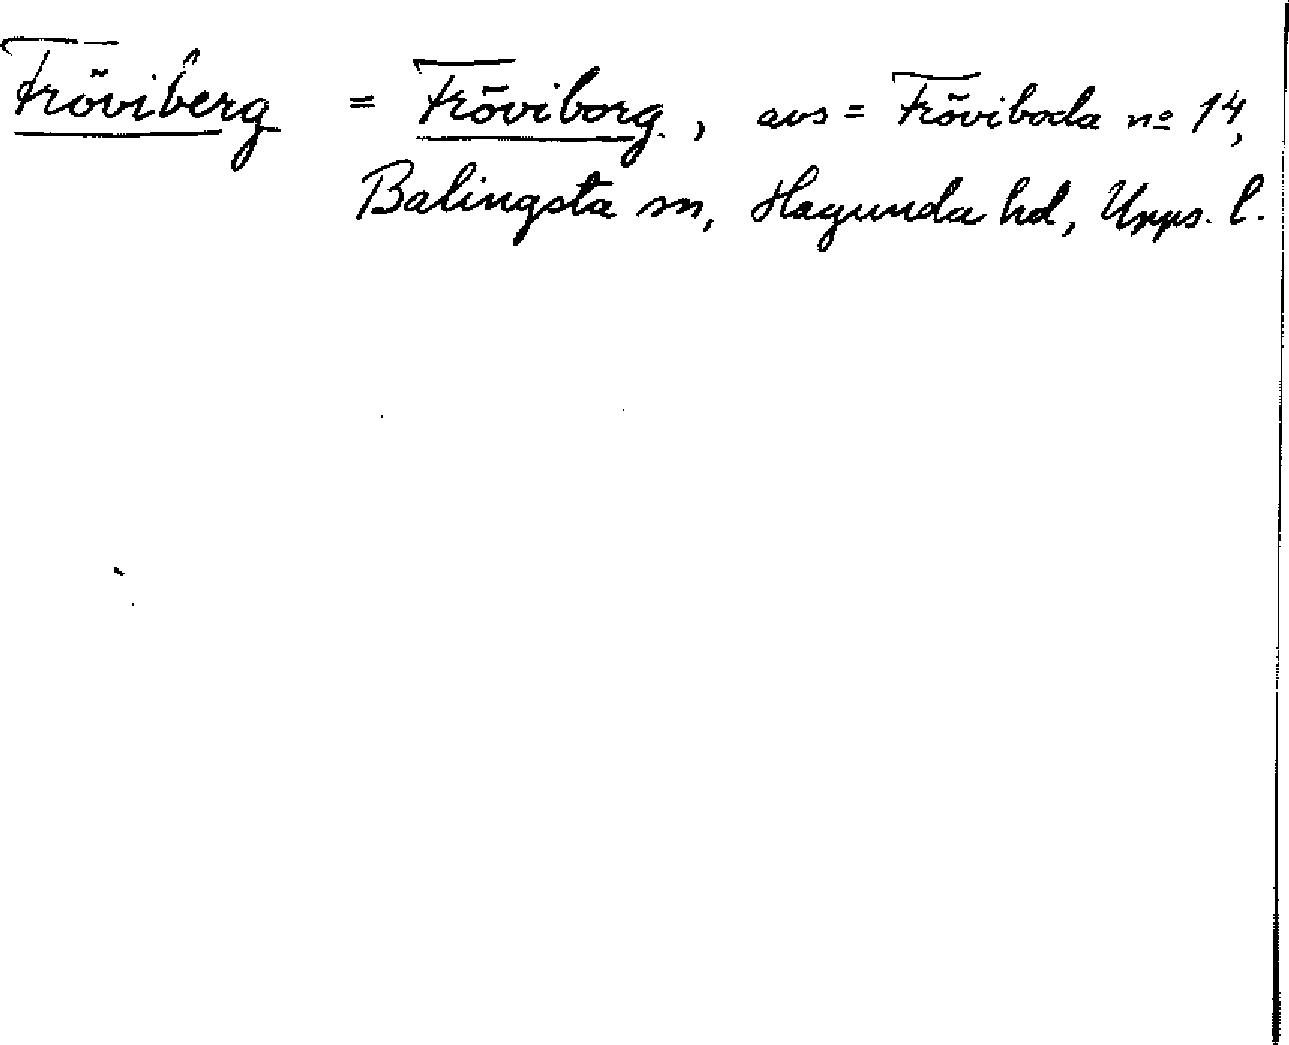 Fröviberg = Fröviborg, avs = Fröviboda no 14,
Balingsta sn, Hagunda hd, Upps. l.